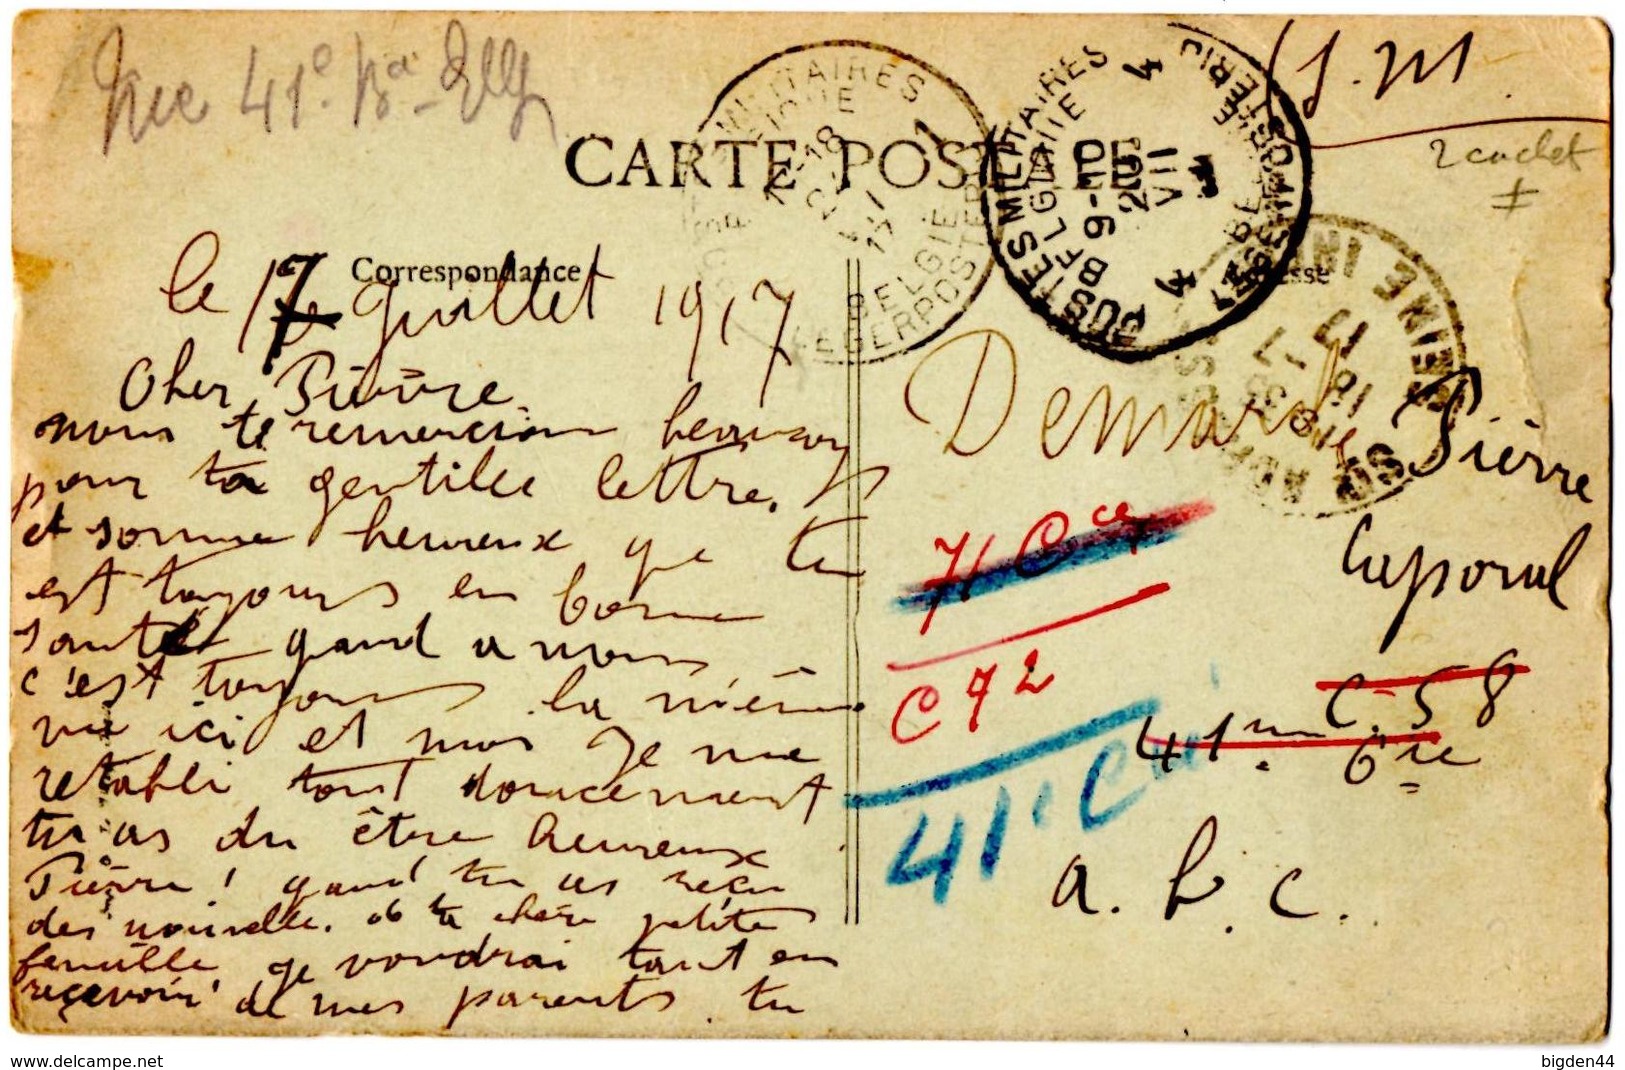 41e
S. M.
2 cachet
CARTE POSTALE
Correspondance
POSTES MILITAIRES
BELGIQUE
BELGIE
LEGERPOSTERIJ
POSTES MILITAIRES
9-10
VII
4
4
le 17 Juillet 1917
Cher Pièrre
nous te remercion beaucoup
pour ta gentille lettre,
et somme heureux que tu
est toujours en bonne
santé quand a nous
c'est toujours la même
vie ici et moi je me
retabli tout doucement
tu as du être heureux
Pièrre ! quand tu as reçu
des nouvelle. de ta chère petite
famille je voudrai tant en
recevoir de mes parents tu
Demard Pièrre
Caporal
7/ Cie
C 72
C. 58
41me Cie
41e Cie
a. b. c.
https://www.delcampe.net
bigden44